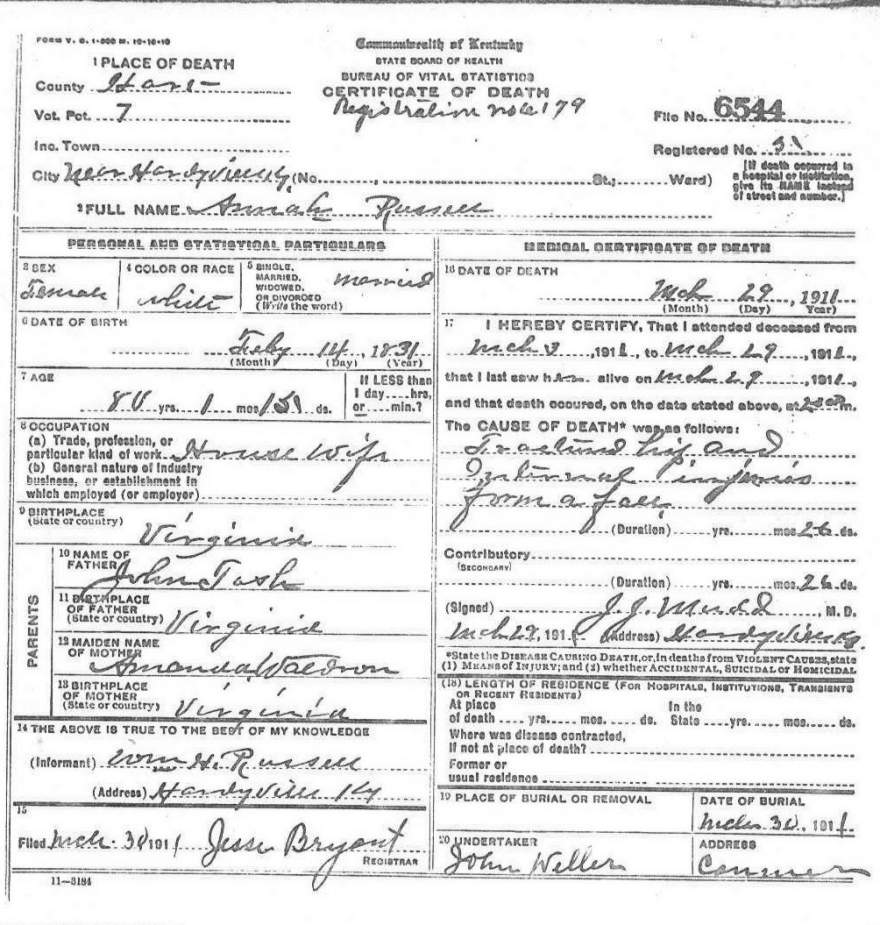 FORM V. S. 1-500 M. 10-10-10
Commonwealth of Kentucky
STATE BOARD OF HEALTH
BUREAU OF VITAL STATISTICS
CERTIFICATE OF DEATH
Registration No 179
1 PLACE OF DEATH
County Hart
Vot. Pct. 7
Inc. Town
City Near Hardyville (No. , St.; Ward)
File No. 6544
Registered No. 31
[If death occurred in a hospital or institution, give its NAME instead of street and number.]
2 FULL NAME Annah Russell
PERSONAL AND STATISTICAL PARTICULARS
3 SEX
Female
4 COLOR OR RACE
white
5 SINGLE, MARRIED, WIDOWED, OR DIVORCED (Write the word)
married
6 DATE OF BIRTH
Feby 14, 1831
(Month) (Day) (Year)
7 AGE
80 yrs. 1 mos 15 ds.
If LESS than 1 day....hrs, or....min.?
8 OCCUPATION
(a) Trade, profession, or
particular kind of work House Wife
(b) General nature of Industry
business, or establishment in
which employed (or employer)
9 BIRTHPLACE
(State or country)
Virginia
PARENTS
10 NAME OF FATHER
John Tash
11 BIRTHPLACE OF FATHER
(State or country) Virginia
12 MAIDEN NAME OF MOTHER
Amanda Waldron
13 BIRTHPLACE OF MOTHER
(State or country) Virginia
14 THE ABOVE IS TRUE TO THE BEST OF MY KNOWLEDGE
(Informant) Wm H. Russell
(Address) Hardyville Ky
15
Filed Mch. 30 1911 Jesse Bryant
REGISTRAR
11—3184
MEDICAL CERTIFICATE OF DEATH
16 DATE OF DEATH
Mch 29, 1911
(Month) (Day) Year)
17 I HEREBY CERTIFY, That I attended deceased from
Mch 3, 1911, to Mch 29, 1911,
that I last saw her alive on Mch 29, 1911,
and that death occured, on the date stated above, at m.
The CAUSE OF DEATH* was as follows:
Fractured hip and
Internal injuries
form a fall
(Duration) yrs. mos 26 ds.
Contributory
(SECONDARY)
(Duration) yrs. mos. 26 ds.
(Signed) J. J. M. D.
Mch 29, 1911 (Address) Hardyville Ky.
*State the DISEASE CAUSING DEATH, or, in deaths from VIOLENT CAUSES, state
(1) MEANS of INJURY; and (2) whether ACCIDENTAL, SUICIDAL OR HOMICIDAL
(18) LENGTH OF RESIDENCE (FOR HOSPITALS, INSTITUTIONS, TRANSIENTS
OR RECENT RESIDENTS)
At place In the
of death .... yrs. mos. ds. State ....yrs. mos. ds.
Where was disease contracted,
If not at place of death?
Former or
usual residence
19 PLACE OF BURIAL OR REMOVAL
DATE OF BURIAL
Mch 30, 1911
20 UNDERTAKER
John Weller
ADDRESS
Canmer